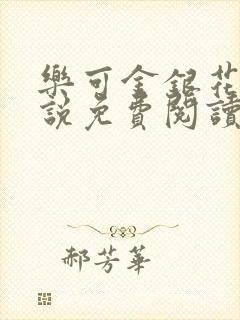 樂可金銀花
説免費閱讀
郝芳華